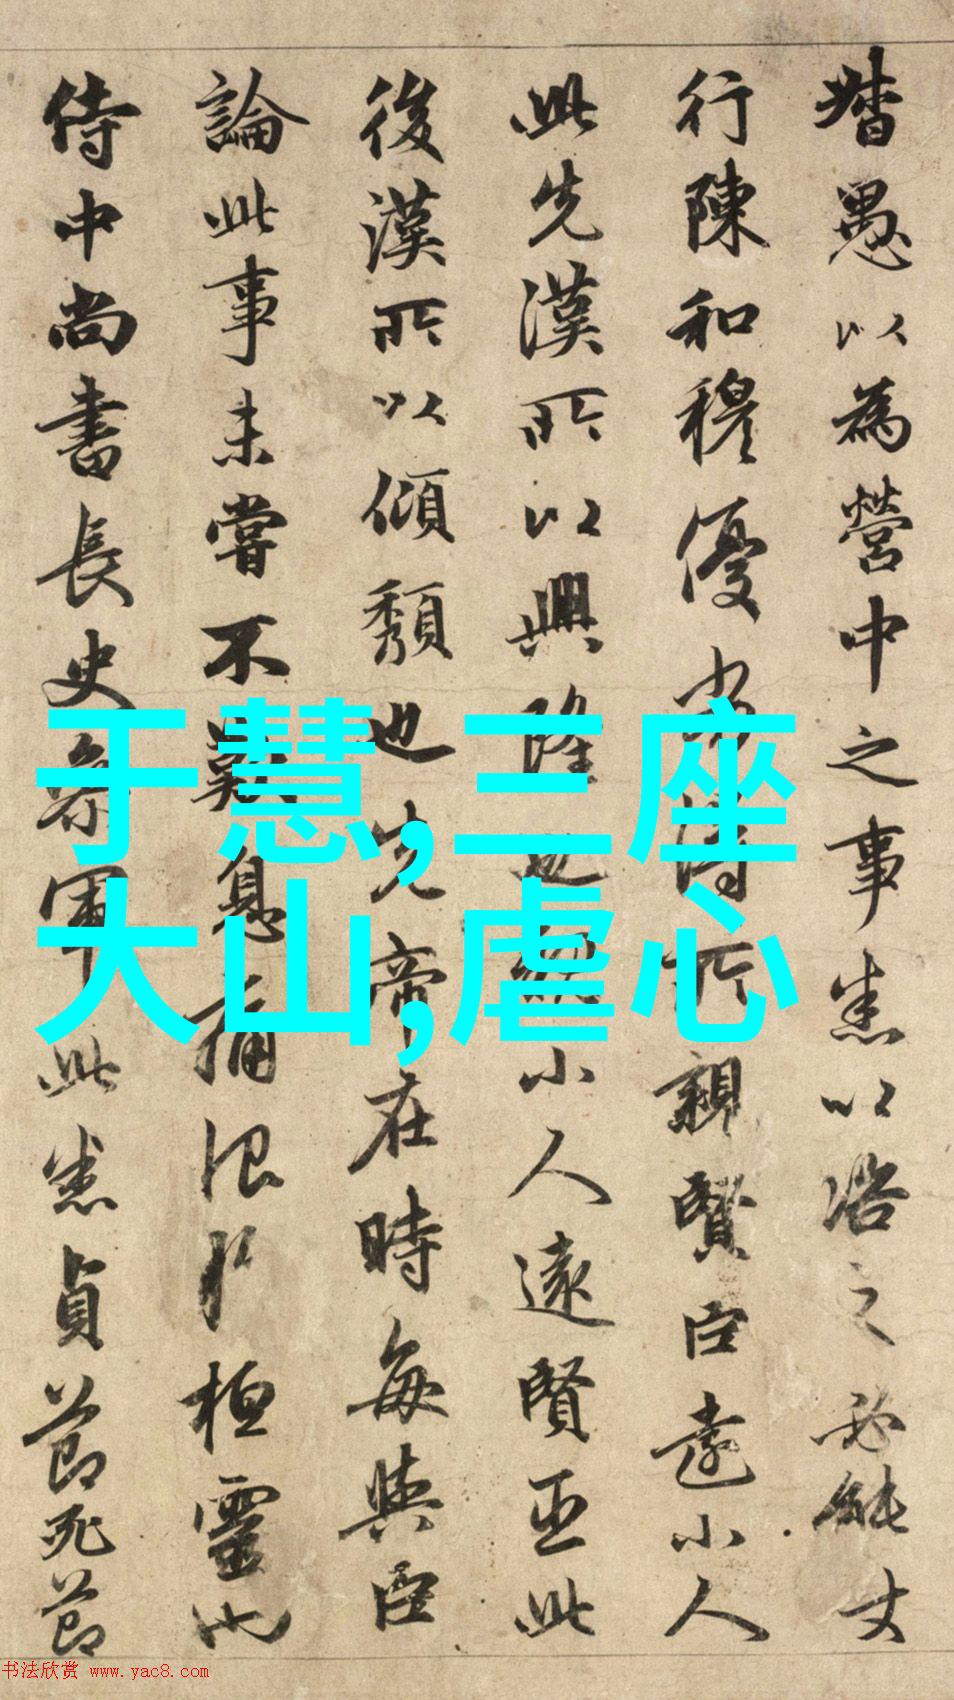 督愚以為營中之事悉以咨之必能丈
行陳和穆優劣得所親賢臣遠小人
此先漢所以興隆也親小人遠賢臣此
後漢所以傾頹也先帝在時每與臣
論此事未嘗不歎息痛恨於桓靈也
侍中尚書長史參軍此悉貞節死節
于慧,三座
大山,虐心
书法欣赏 www.yac8.com